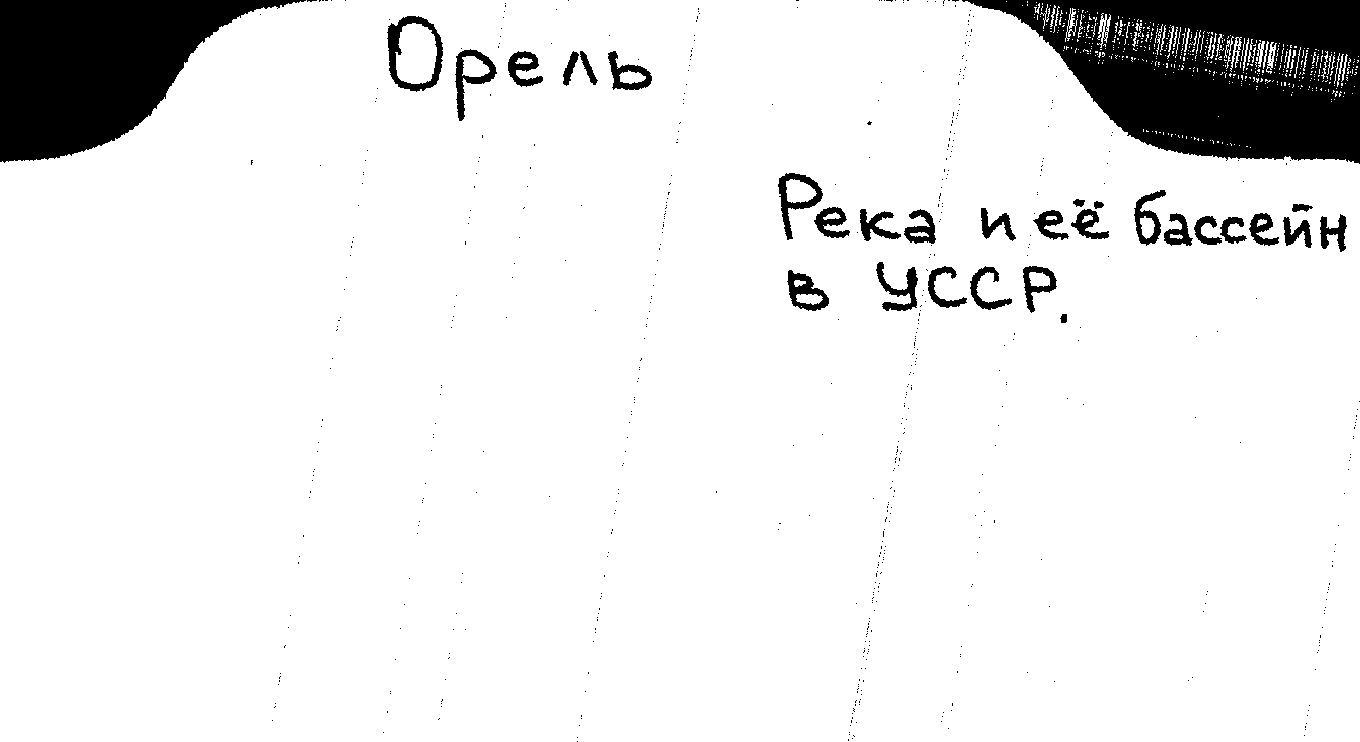 Орель
Река и её бассейн
в УССР.